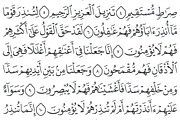 صِرَٰطٍ مُّسْتَقِيمٍ ۝ تَنزِيلَ ٱلْعَزِيزِ ٱلرَّحِيمِ ۝ لِتُنذِرَ قَوْمًا
مَّآ أُنذِرَ ءَابَآؤُهُمْ فَهُمْ غَٰفِلُونَ ۝ لَقَدْ حَقَّ ٱلْقَوْلُ عَلَىٰٓ أَكْثَرِهِمْ
فَهُمْ لَا يُؤْمِنُونَ ۝ إِنَّا جَعَلْنَا فِىٓ أَعْنَٰقِهِمْ أَغْلَٰلًا فَهِىَ إِلَى
ٱلْأَذْقَانِ فَهُم مُّقْمَحُونَ ۝ وَجَعَلْنَا مِنۢ بَيْنِ أَيْدِيهِمْ سَدًّا
وَمِنْ خَلْفِهِمْ سَدًّا فَأَغْشَيْنَٰهُمْ فَهُمْ لَا يُبْصِرُونَ ۝ وَسَوَآءٌ
عَلَيْهِمْ ءَأَنذَرْتَهُمْ أَمْ لَمْ تُنذِرْهُمْ لَا يُؤْمِنُونَ ۝ إِنَّمَا تُنذِرُ